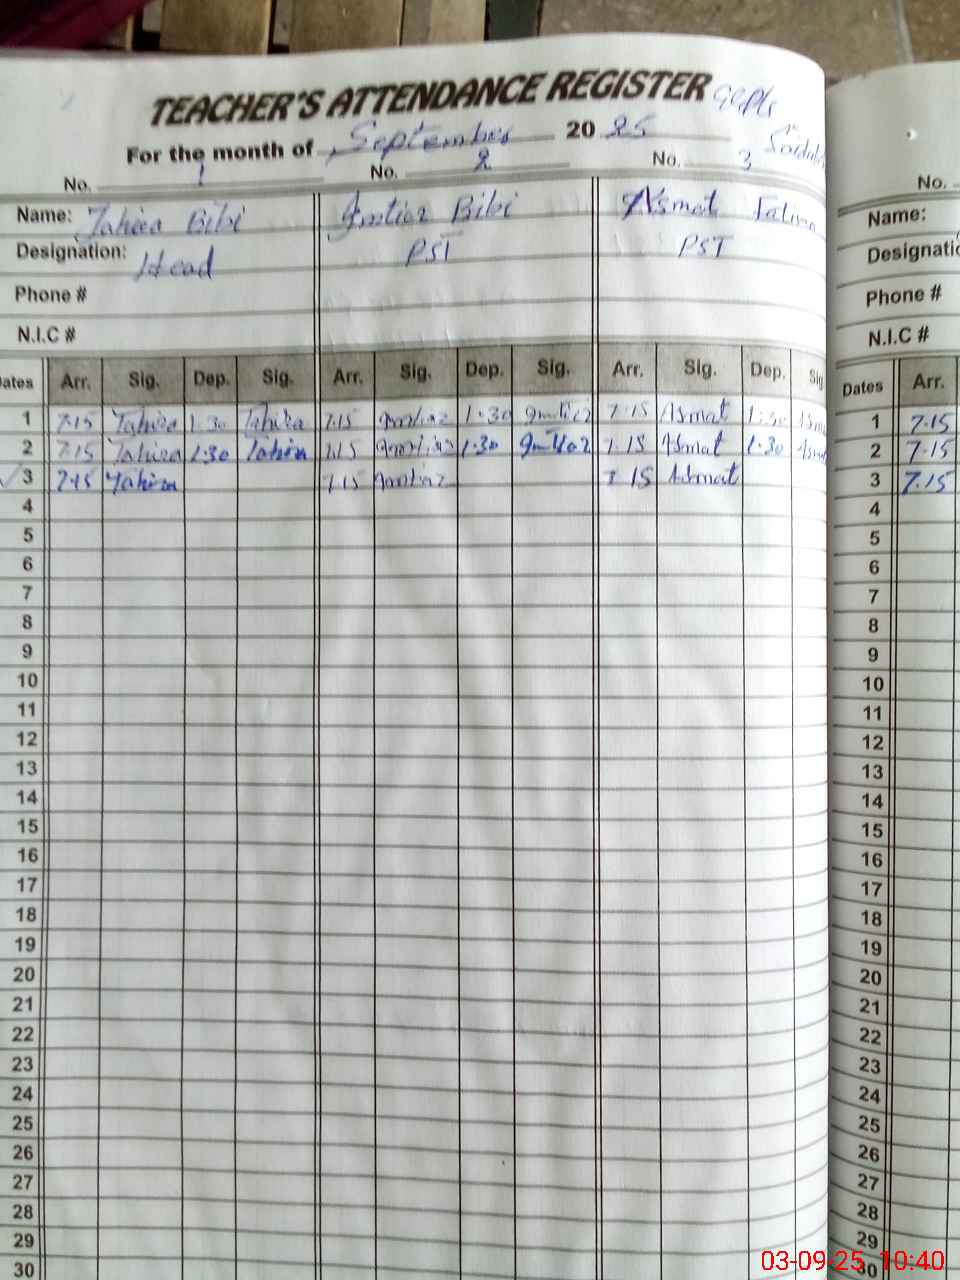 TEACHER'S ATTENDANCE REGISTER GGPS
For the month of September 2025
No. 1 No. 2 No. 3
Name: Tahira Bibi Imtiaz Bibi Asmat Fatima
Designation: Head PST PST
Phone #
N.I.C #
Dates Arr. Sig. Dep. Sig. Arr. Sig. Dep. Sig. Arr. Sig. Dep. Sig
1 7.15 Tahira 1.30 Tahira 7.15 Imtiaz 1.30 Imtiaz 7.15 Asmat 1.30
2 7.15 Tahira 1.30 Tahira 7.15 Imtiaz 1.30 Imtiaz 7.15 Asmat 1.30
3 7.15 Tahira 7.15 Imtiaz 7.15 Asmat
4
5
6
7
8
9
10
11
12
13
14
15
16
17
18
19
20
21
22
23
24
25
26
27
28
29
30
No.
Name:
Phone #
N.I.C #
Dates Arr.
1 7.15
2 7.15
3 7.15
4
5
6
7
8
9
10
11
12
13
14
15
16
17
18
19
20
21
22
23
24
25
26
27
28
29
30
03-09-25 10:40